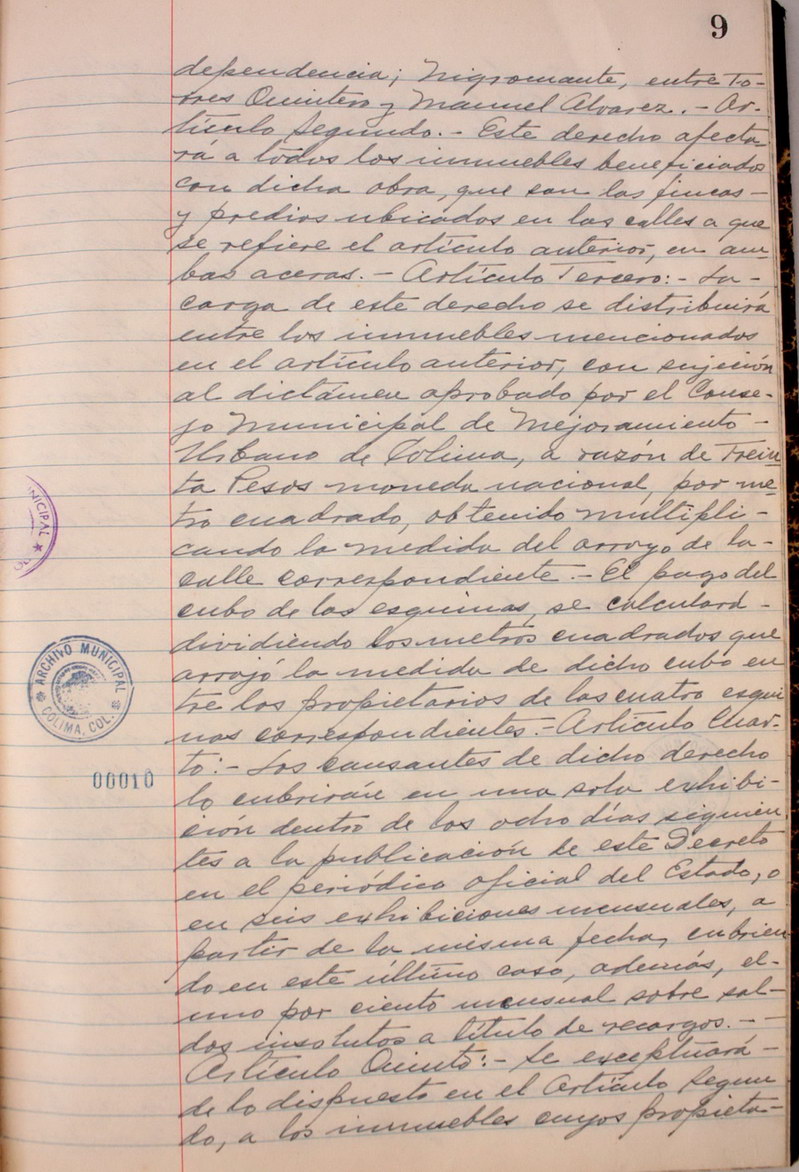 9
dependencia; Nigromante, entre To-
rres Quintero y Manuel Alvarez. - Ar-
tículo Segundo. - Este derecho afecta-
rá a todos los inmuebles beneficiados
con dicha obra, que son las fincas -
y predios ubicados en las calles a que
se refiere el artículo anterior, en am-
bas aceras. - Artículo Tercero: - La -
carga de este derecho se distribuirá
entre los inmuebles mencionados
en el artículo anterior, con sujeción
al dictámen aprobado por el Conse-
jo Municipal de Mejoramiento -
Urbano de Colima, a razón de Trein-
ta Pesos moneda nacional, por me-
tro cuadrado, obtenido multipli-
cando la medida del arroyo de la -
calle correspondiente. - El pago del
cubo de las esquinas, se calculará -
dividiendo los metros cuadrados que
arrojó la medida de dicho cubo en
tre los propietarios de las cuatro esqui
nas correspondientes. - Artículo Cuar-
to: - Los causantes de dicho derecho
lo cubrirán en una sola exhibi-
ción dentro de los ocho días siguien
tes a la publicación de este Decreto
en el periódico oficial del Estado, o
en seis exhibiciones mensuales, a
partir de la misma fecha, cubrien
do en este último caso, además, el -
uno por ciento mensual sobre sal-
dos insolutos a título de recargos. - -
Artículo Quinto: - Se exceptuará -
de lo dispuesto en el Artículo Segun
do, a los inmuebles cuyos propieta-
NICIPAL
ARCHIVO MUNICIPAL
COLIMA, COL.
00010